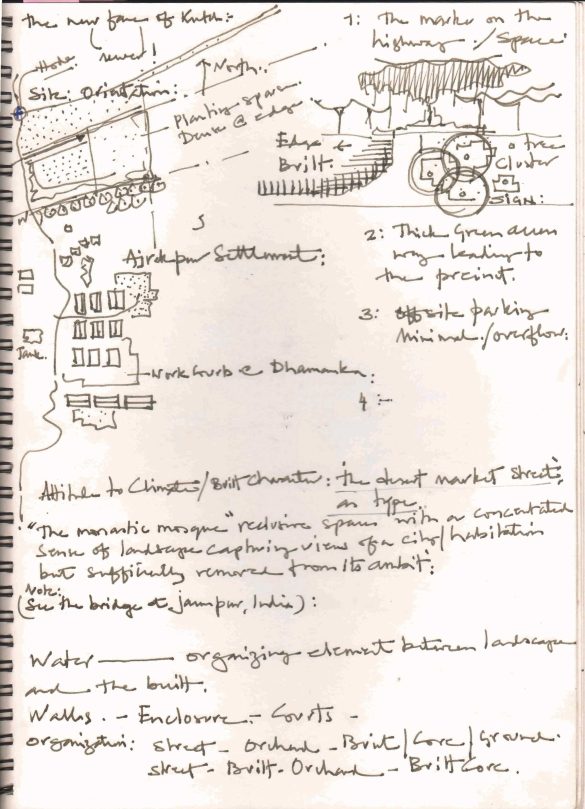 The new face of Kutch:-
newer!
Hotel
Site: Orientation:
North.
Planting space
Dense @ edge
1: The marker on the
highway. /Space:
Edge
Built.
tree
Cluster
SIGN:
S
Ajrakpur Settlement:
2: Thick Green
way leading to
the precinct.
3: offsite parking
Minimal./overflow:
Tank.
Dhamanka:
4:-
Attitude to Climate/Built Character: the desert market street,
as type.
"The monastic mosque" reclusive space with a concentrated
sense of landscape capturing view of a city/habitation
but sufficiently removed from its ambit:
Note:
(See the bridge at Jaunpur, India):
Water ——— organizing element between landscape
and the built.
Walls. - Enclosure - Courts -
organization: Street - Orchard - Built/Core/Ground.
Street - Built - Orchard - Built Core.